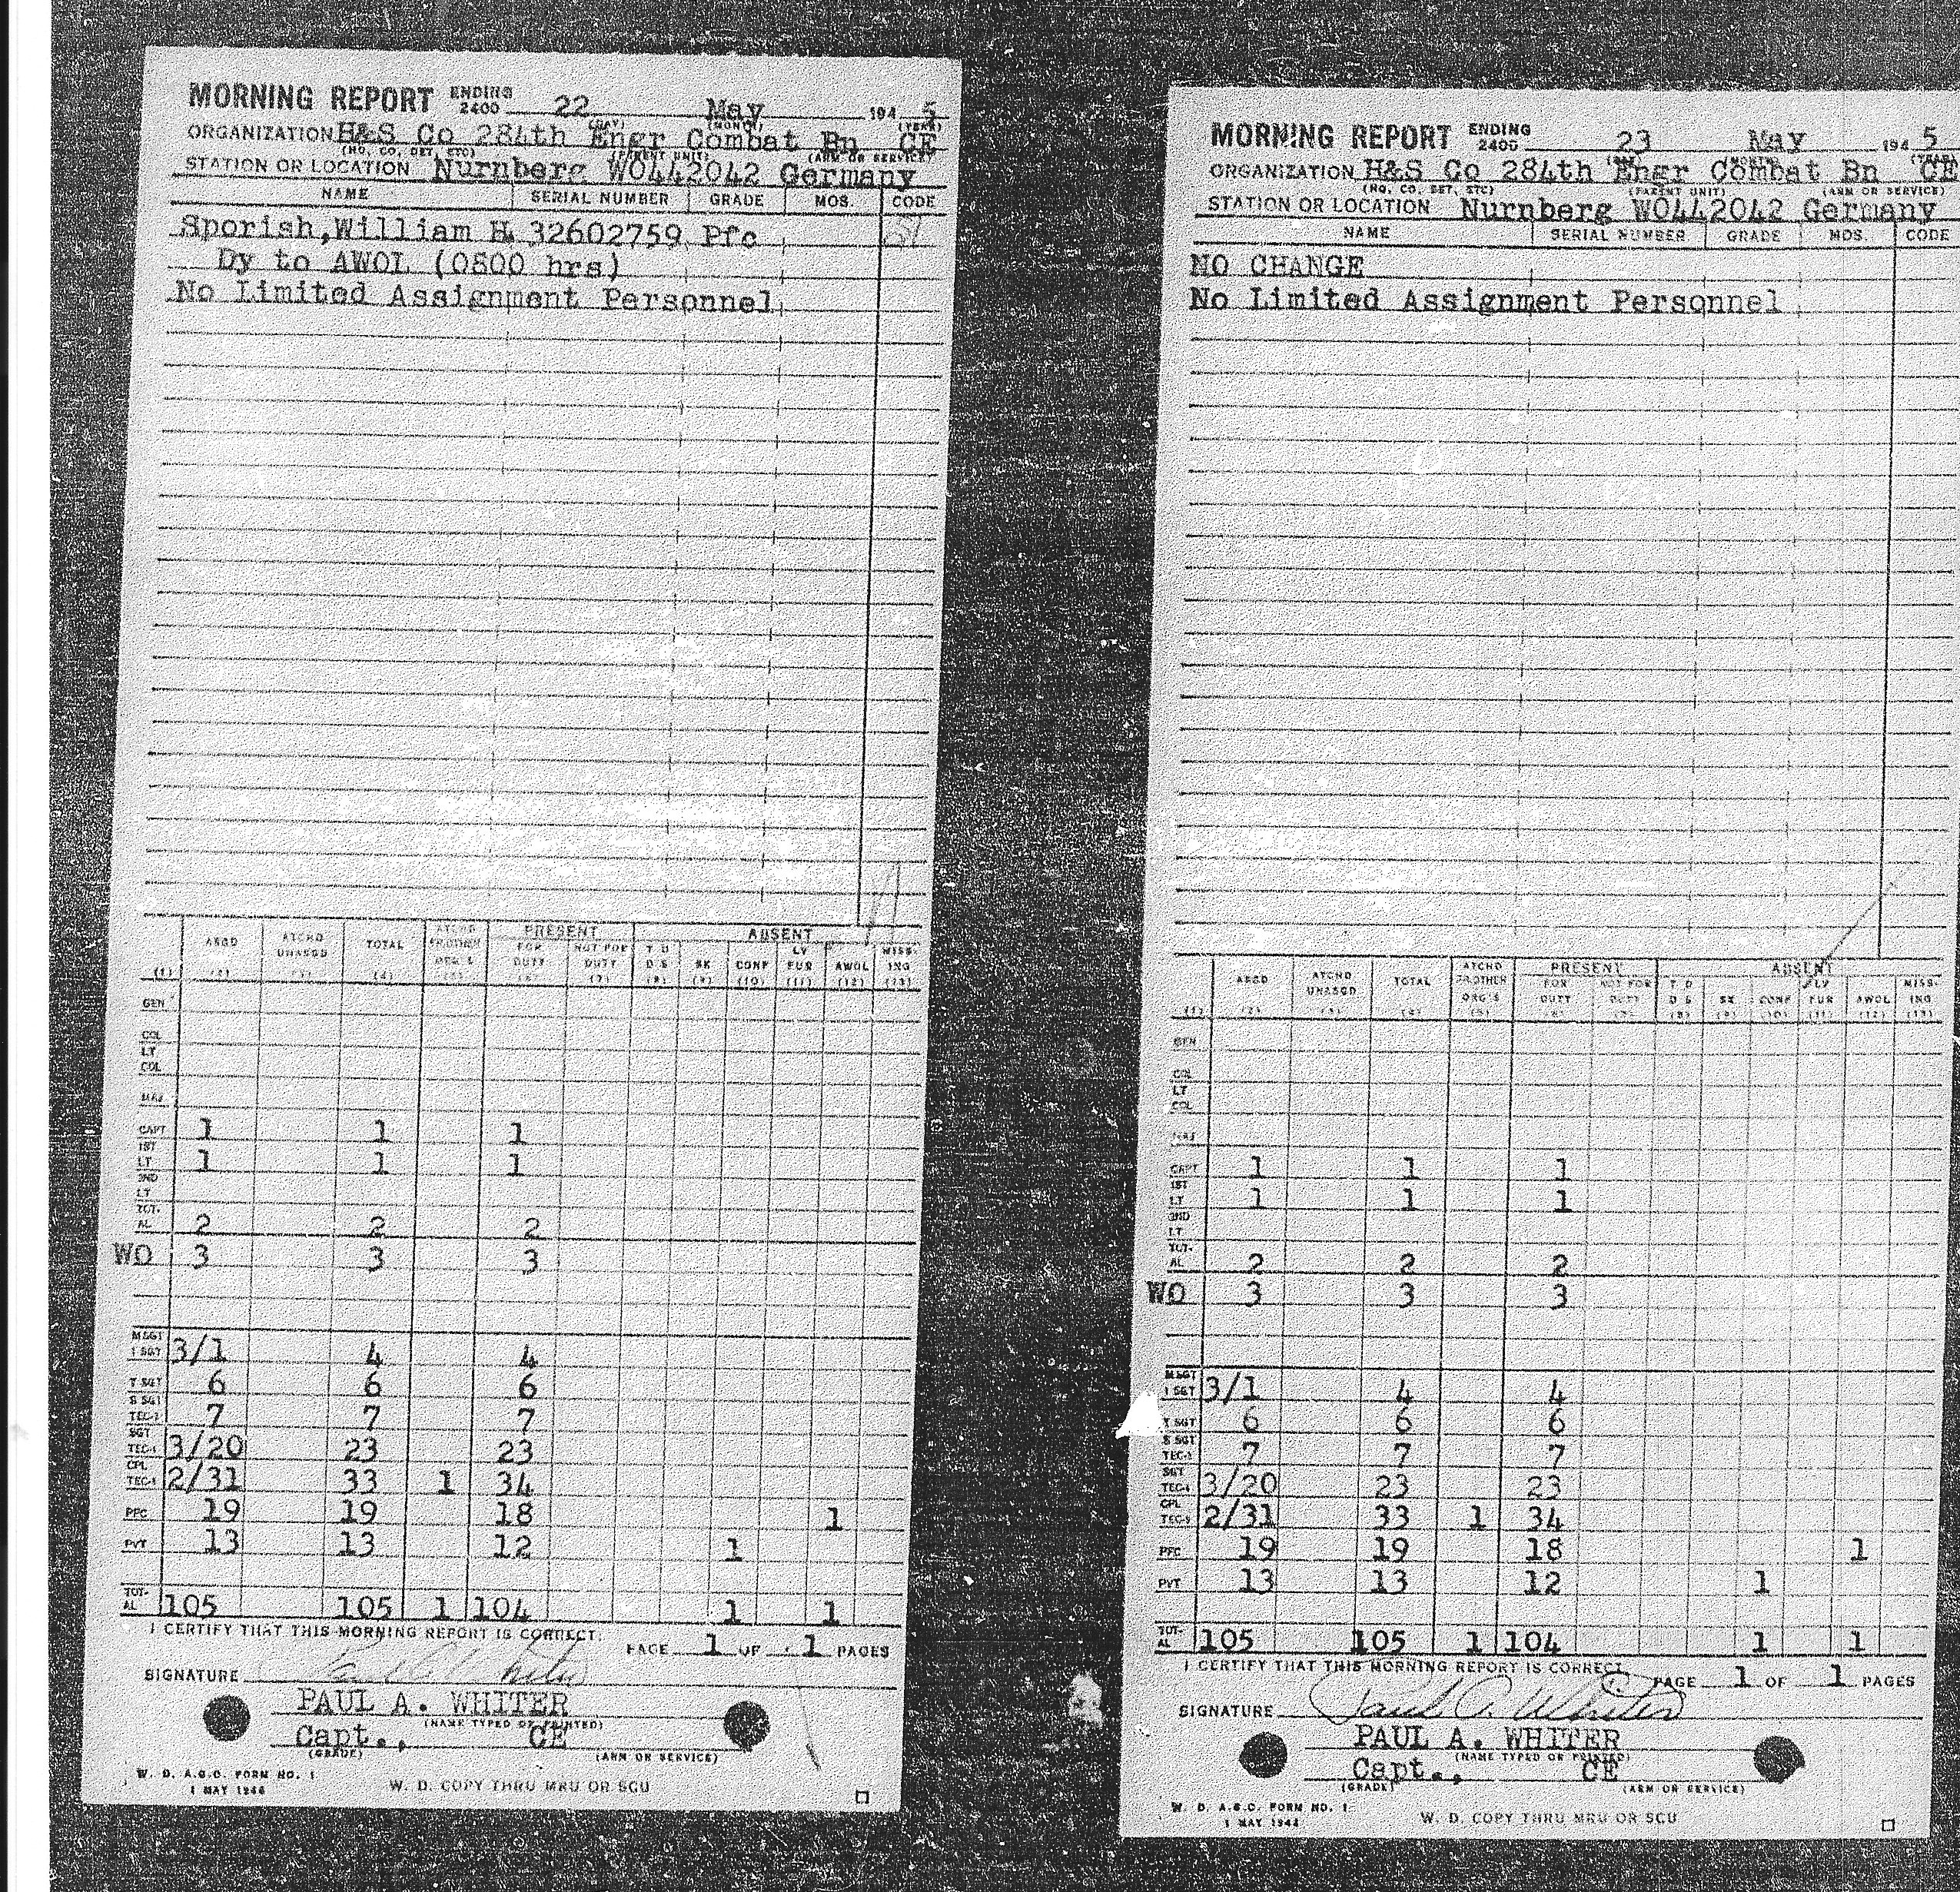 MORNING REPORT ENDING 2400 22 May 194 5
(DAY) (MONTH) (YEAR)
ORGANIZATION H&S Co 284th Engr Combat Bn CE
(HQ, CO, DET, ETC) (PARENT UNIT) (ARM OR SERVICE)
STATION OR LOCATION Nurnberg WO442042 Germany
NAME SERIAL NUMBER GRADE MOS. CODE
Sporish, William H 32602759 Pfc
Dy to AWOL (0800 hrs)
No Limited Assignment Personnel
PRESENT ABSENT
ASGD ATCHD UNASGD TOTAL ATCHD FR OTHER ORG'S FOR DUTY NOT FOR DUTY T D D S SK CONF LV FUR AWOL MISSING
(1) (2) (3) (4) (5) (6) (7) (8) (9) (10) (11) (12) (13)
GEN
COL
LT COL
MAJ
CAPT 1 1 1
1ST LT 1 1 1
2ND LT
TOTAL 2 2 2
WO 3 3 3
M SGT 1 SGT 3/1 4 4
T SGT 6 6 6
S SGT TEC-3 7 7 7
SGT TEC-4 3/20 23 23
CPL TEC-5 2/31 33 1 34
PFC 19 19 18 1
PVT 13 13 12 1
TOTAL 105 105 1 104 1 1
I CERTIFY THAT THIS MORNING REPORT IS CORRECT. PAGE 1 OF 1 PAGES
SIGNATURE Paul A. Whiter
PAUL A. WHITER
(NAME TYPED OR PRINTED)
Capt., CE
(GRADE) (ARM OR SERVICE)
W. D. A.G.O. FORM NO. 1
W. D. COPY THRU MRU OR SCU
MORNING REPORT ENDING 2400 23 May 194 5
(DAY) (MONTH) (YEAR)
ORGANIZATION H&S Co 284th Engr Combat Bn CE
(HQ, CO, DET, ETC) (PARENT UNIT) (ARM OR SERVICE)
STATION OR LOCATION Nurnberg WO442042 Germany
NAME SERIAL NUMBER GRADE MOS. CODE
NO CHANGE
No Limited Assignment Personnel
PRESENT ABSENT
ASGD ATCHD UNASGD TOTAL ATCHD FR OTHER ORG'S FOR DUTY NOT FOR DUTY T D D S SK CONF LV FUR AWOL MISSING
(1) (2) (3) (4) (5) (6) (7) (8) (9) (10) (11) (12) (13)
GEN
COL
LT COL
MAJ
CAPT 1 1 1
1ST LT 1 1 1
2ND LT
TOTAL 2 2 2
WO 3 3 3
M SGT 1 SGT 3/1 4 4
T SGT 6 6 6
S SGT TEC-3 7 7 7
SGT TEC-4 3/20 23 23
CPL TEC-5 2/31 33 1 34
PFC 19 19 18 1
PVT 13 13 12 1
TOTAL 105 105 1 104 1 1
I CERTIFY THAT THIS MORNING REPORT IS CORRECT. PAGE 1 OF 1 PAGES
SIGNATURE Paul A. Whiter
PAUL A. WHITER
(NAME TYPED OR PRINTED)
Capt., CE
(GRADE) (ARM OR SERVICE)
W. D. A.G.O. FORM NO. 1
W. D. COPY THRU MRU OR SCU